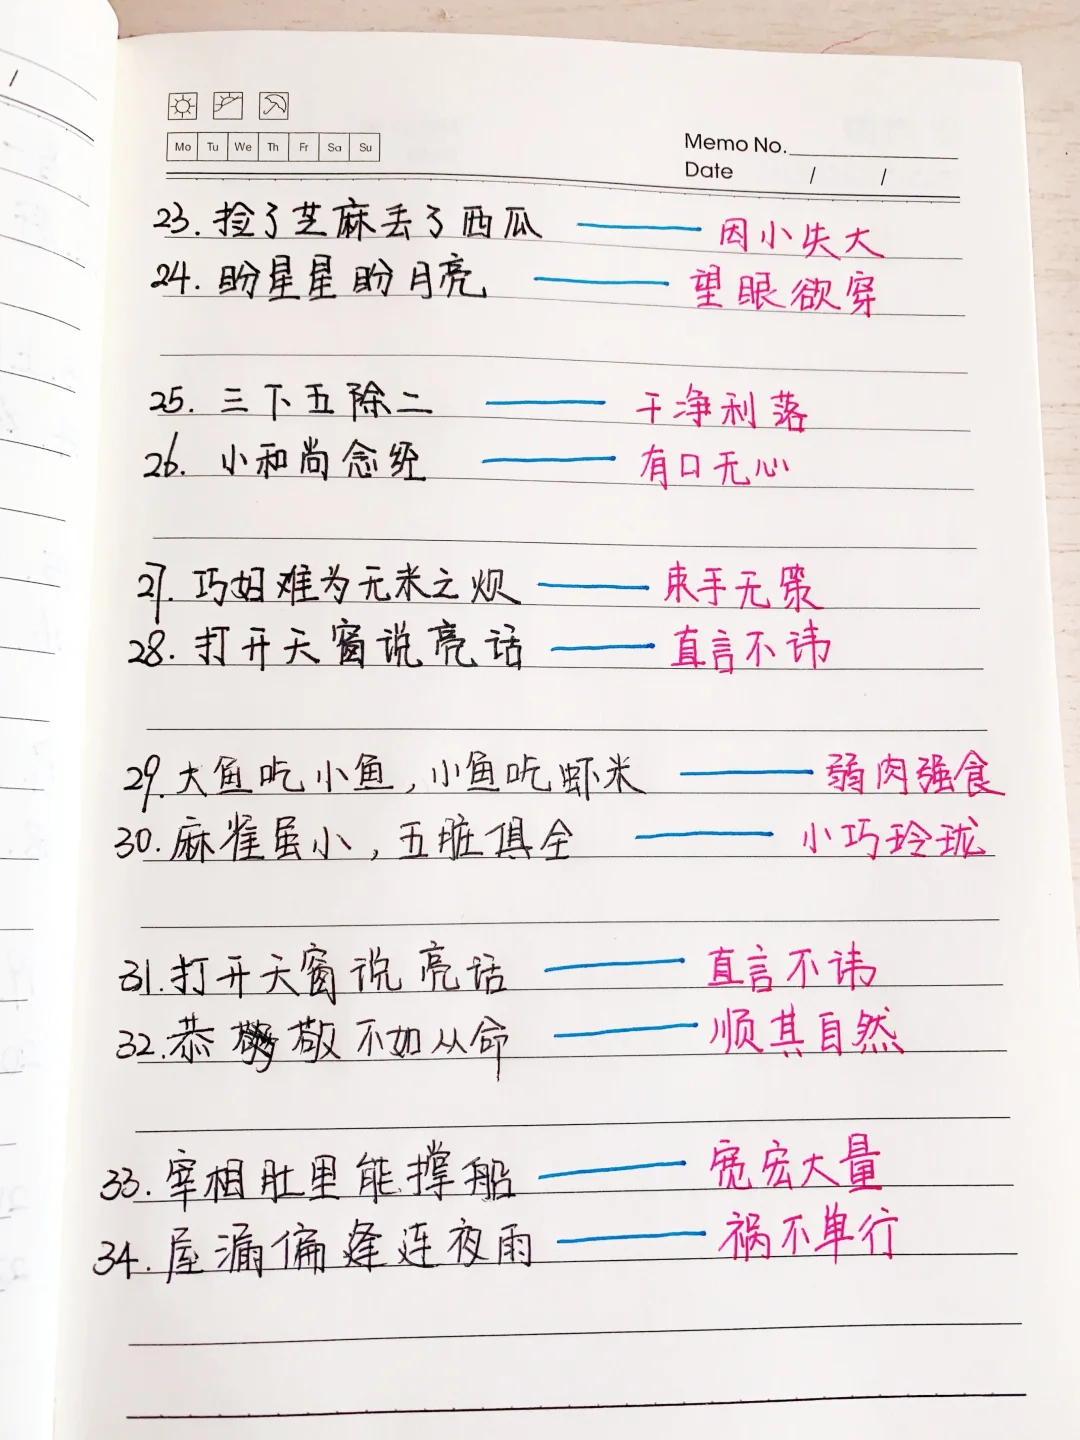 /
Mo Tu We Th Fr Sa Su
Memo No.
Date / /
23. 捡了芝麻丢了西瓜 —— 因小失大
24. 盼星星盼月亮 —— 望眼欲穿
25. 三下五除二 —— 干净利落
26. 小和尚念经 —— 有口无心
27. 巧妇难为无米之炊 —— 束手无策
28. 打开天窗说亮话 —— 直言不讳
29. 大鱼吃小鱼,小鱼吃虾米 —— 弱肉强食
30. 麻雀虽小,五脏俱全 —— 小巧玲珑
31. 打开天窗说亮话 —— 直言不讳
32. 恭敬不如从命 —— 顺其自然
33. 宰相肚里能撑船 —— 宽宏大量
34. 屋漏偏逢连夜雨 —— 祸不单行